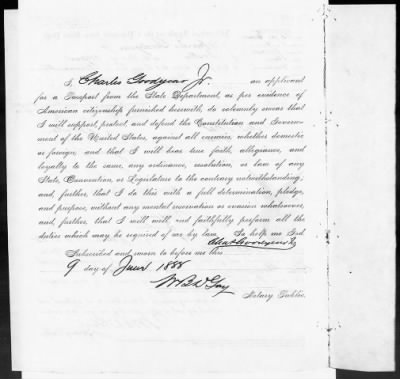 I Charles Goodyear Jr. an applicant
for a Passport from the State Department, as per evidence of
American citizenship furnished herewith, do solemnly swear that
I will support, protect, and defend the Constitution and Govern-
ment of the United States, against all enemies, whether domestic
or foreign; and that I will bear true faith, allegiance, and
loyalty to the same, any ordinance, resolution, or law of any
State, Convention or Legislature to the contrary notwithstanding,
and, further, that I do this with a full determination, pledge,
and purpose, without any mental reservation or evasion whatsoever,
and, further, that I will well and faithfully perform all the
duties which may be required of me by law. So help me God
Chas Goodyear Jr
Subscribed and sworn to before me this
9 day of June 1888
Notary Public.